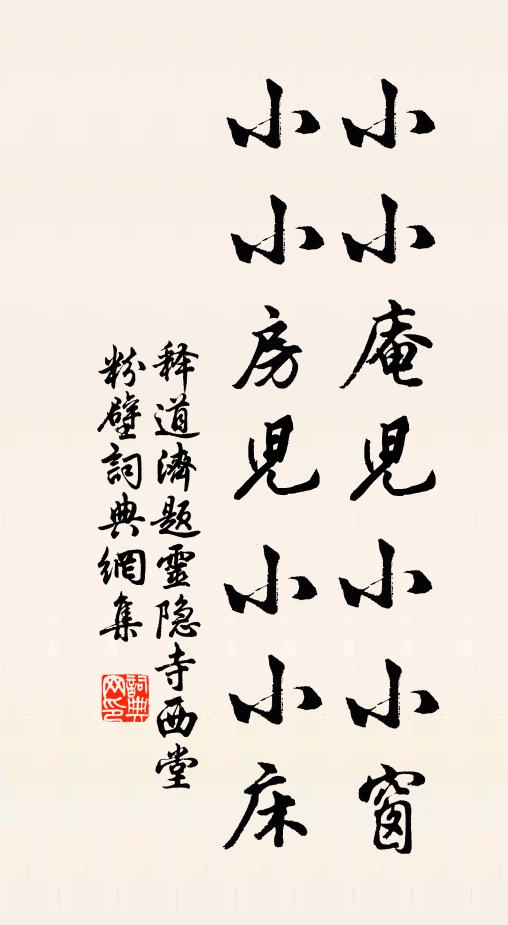 小小庵児小小窗
小小房児小小床
释道濟題靈隐寺西堂
粉壁詞典網集
詞典网印